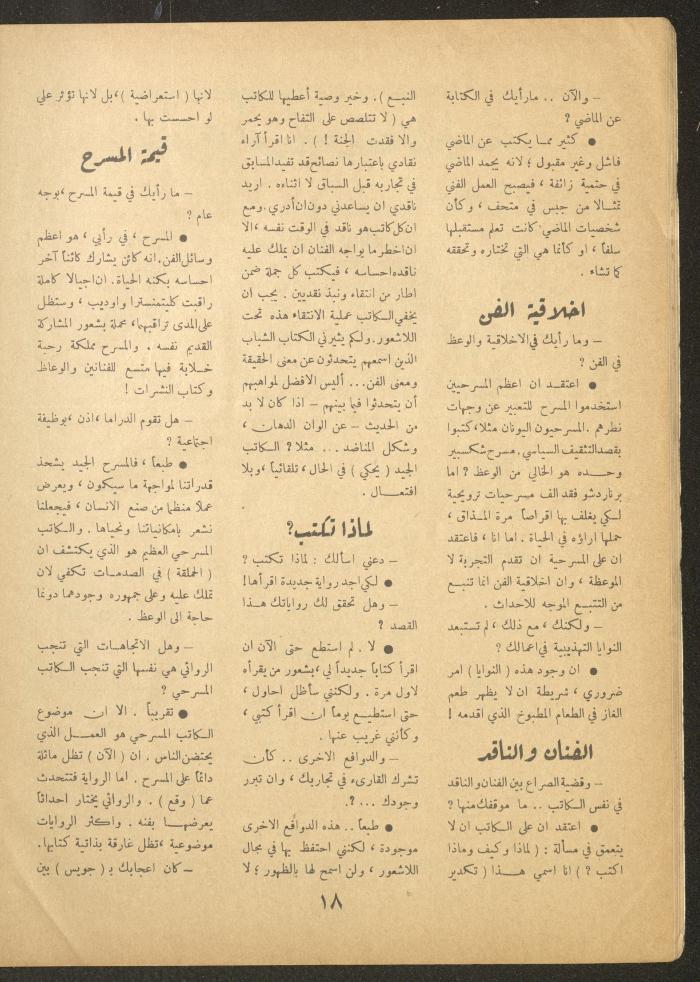 – والآن .. مارأيك في الكتابة
عن الماضي ؟
● كثير ممـا يكتب عن الماضي
فاشل وغير مقبول ؛ لانه يجمد الماضي
في حتمية زائفة ، فيصبح العمل الفني
تمثـالا من جبس في متحف ، وكأن
شخصيات الماضي كانت تعلم مستقبلها
سلفاً ، او كأنما هي التي تختاره وتحققه
كما تشاء .
اخلاقية الفن
– وما رأيك في الاخلاقية والوعظ
في الفن ؟
● اعتقـد ان اعظم المسرحيين
استخدموا المسرح للتعبير عن وجهات
نظرهم . المسرحيون اليونان مثلا، كتبوا
بقصد التثقيف السياسي. مسرح شكسبير
وحـده هو الخالي من الوعظ ? اما
برناردشو فقد الف مسرحيات ترويحية
لـكي يغلف بها اقراصاً مرة المـذاق ،
حملها اراؤه في الحياة . اما انا ، فاعتقد
ان على المسرحية ان تقدم التجربة لا
الموعظة ، وان اخلاقية الفن انما تنبـع
من التتبـع الموجه للاحداث .
– ولكنك ، مع ذلك ، لم تستبعد
النوايا التهذيبية في اعمالك ؟
● ان وجود هذه ( النوايا ) امر
ضروري ، شريطة ان لا يظهر طعم
الغاز في الطعام المطبوخ الذي اقدمه !
الفنان والناقد
– وقضية الصراع بين الفنان والناقد
في نفس الـكاتب .. ما موقفك منها ؟
● اعتقد ان على الـكاتب ان لا
يتعمق في مسألة : ( لماذا وكيف وماذا
اكتب ? ) انا اسمي هـذا ( تكدير
النبـع ) . وخير وصية أعطيها للكاتب
هي ( لا تتلصص على التفاح وهو يحمر
والا فقدت الجنة ! ) . انا اقرأ آراء
نقادي باعتبارها نصائح قد تفيد المسابق
في تجاربه قبل السباق لا اثناءه . اريد
ناقدي ان يساعدني دون ان أدري. ومع
ان كل كاتب هو ناقد في الوقت نفسه ، الا
ان اخطر ما يواجه الفنان ان يملك عليه
ناقده احساسه ، فيكتب كل جملة ضمن
اطار من انتقاء ونبذ نقديين . يجب ان
يخفي الـكاتب عملية الانتقاء هذه تحت
اللاشعور. ولكم يثيرني الكتاب الشباب
الذين اسمعهم يتحدثون عن معنى الحقيقة
ومعنى الفن... أليس الافضل لمواهبهم
أن يتحدثوا فيما بينهم – اذا كان لا بد
من الحديث – عن الوان الدهان ،
وشكل المناضد ... مثلا ? الـكاتب
الجيد ( يحكي ) في الحال ، تلقائياً ، وبلا
افتعـــال .
لماذا تكتب؟
– دعني اسألك : لماذا تكتب ؟
● لكي اجد رواية جديدة اقرأها !
– وهل تحقق لك رواياتك هـذا
القصد ؟
● لا . لم استطع حتى الآن ان
اقرأ كتاباً جديداً لي ، بشعور من يقرأه
لاول مرة . ولكنني سأظل احاول ،
حتى استطيـع يوماً ان اقرأ كتبي ،
وكأنني غريب عنها .
– والدوافع الاخرى .. كـأن
تشرك القارىء في تجاربك ، وان تبرر
وجودك ... ؟.
● طبعاً .. هذه الدوافع الاخرى
موجودة ، لكنني احتفظ بها في مجال
اللاشعور ، ولن اسمح لها بالظهور ؛ لا
لانها ( استعراضية )، بل لانها تؤثر علي
لو احسست بها .
قيمة المسرح
– ما رأيك في قيمة المسرح ، بوجه
عام ؟
● المسرح ، في رأيي ، هو اعظم
وسائل الفن. انه كائن يشارك كائناً آخر
احساسه بكنه الحياة. ان اجيالا كاملة
راقبت كليتمنسترا واوديب ، وستظل
على المدى تراقبهما، محملة بشعور المشاركة
القديم نفسه . والمسرح مملكة رحبة
خـلابة فيها متسع للفنانين والوعاظ
وكتاب النشرات !
– هل تقوم الدراما ، اذن ، بوظيفة
اجتماعية ؟
● طبعاً ، فالمسرح الجيد يشحذ
قدراتنا لمواجهة ما سيكون ، ويعرض
عملا منظما من صنع الانسان ، فيجعلنا
نشعر بامكانياتنا ونحياها . والـكاتب
المسرحي العظيم هو الذي يكتشف ان
( الحلقة ) في الصدمـات تكفي لان
تملك عليه وعلى جمهوره وجودهما دونما
حاجة الى الوعظ .
– وهل الاتجاهـات التي تنجب
الروائي هي نفسها التي تنجب الـكاتب
المسرحي ؟
● تقريباً . الا ان موضوع
الـكاتب المسرحي هو العمـل الذي
يحتضن الناس . ان ( الآن ) تظل ماثلة
دائماً على المسرح . اما الرواية فتتحدث
عما ( وقع ) . والروائي يختار احداثاً
يعرضهـا بفنه . واكثر الروايات
موضوعية ، تظل غارقة بذاتية كتابها.
– كان اعجابك بـ ( جويس ) بين
١٨